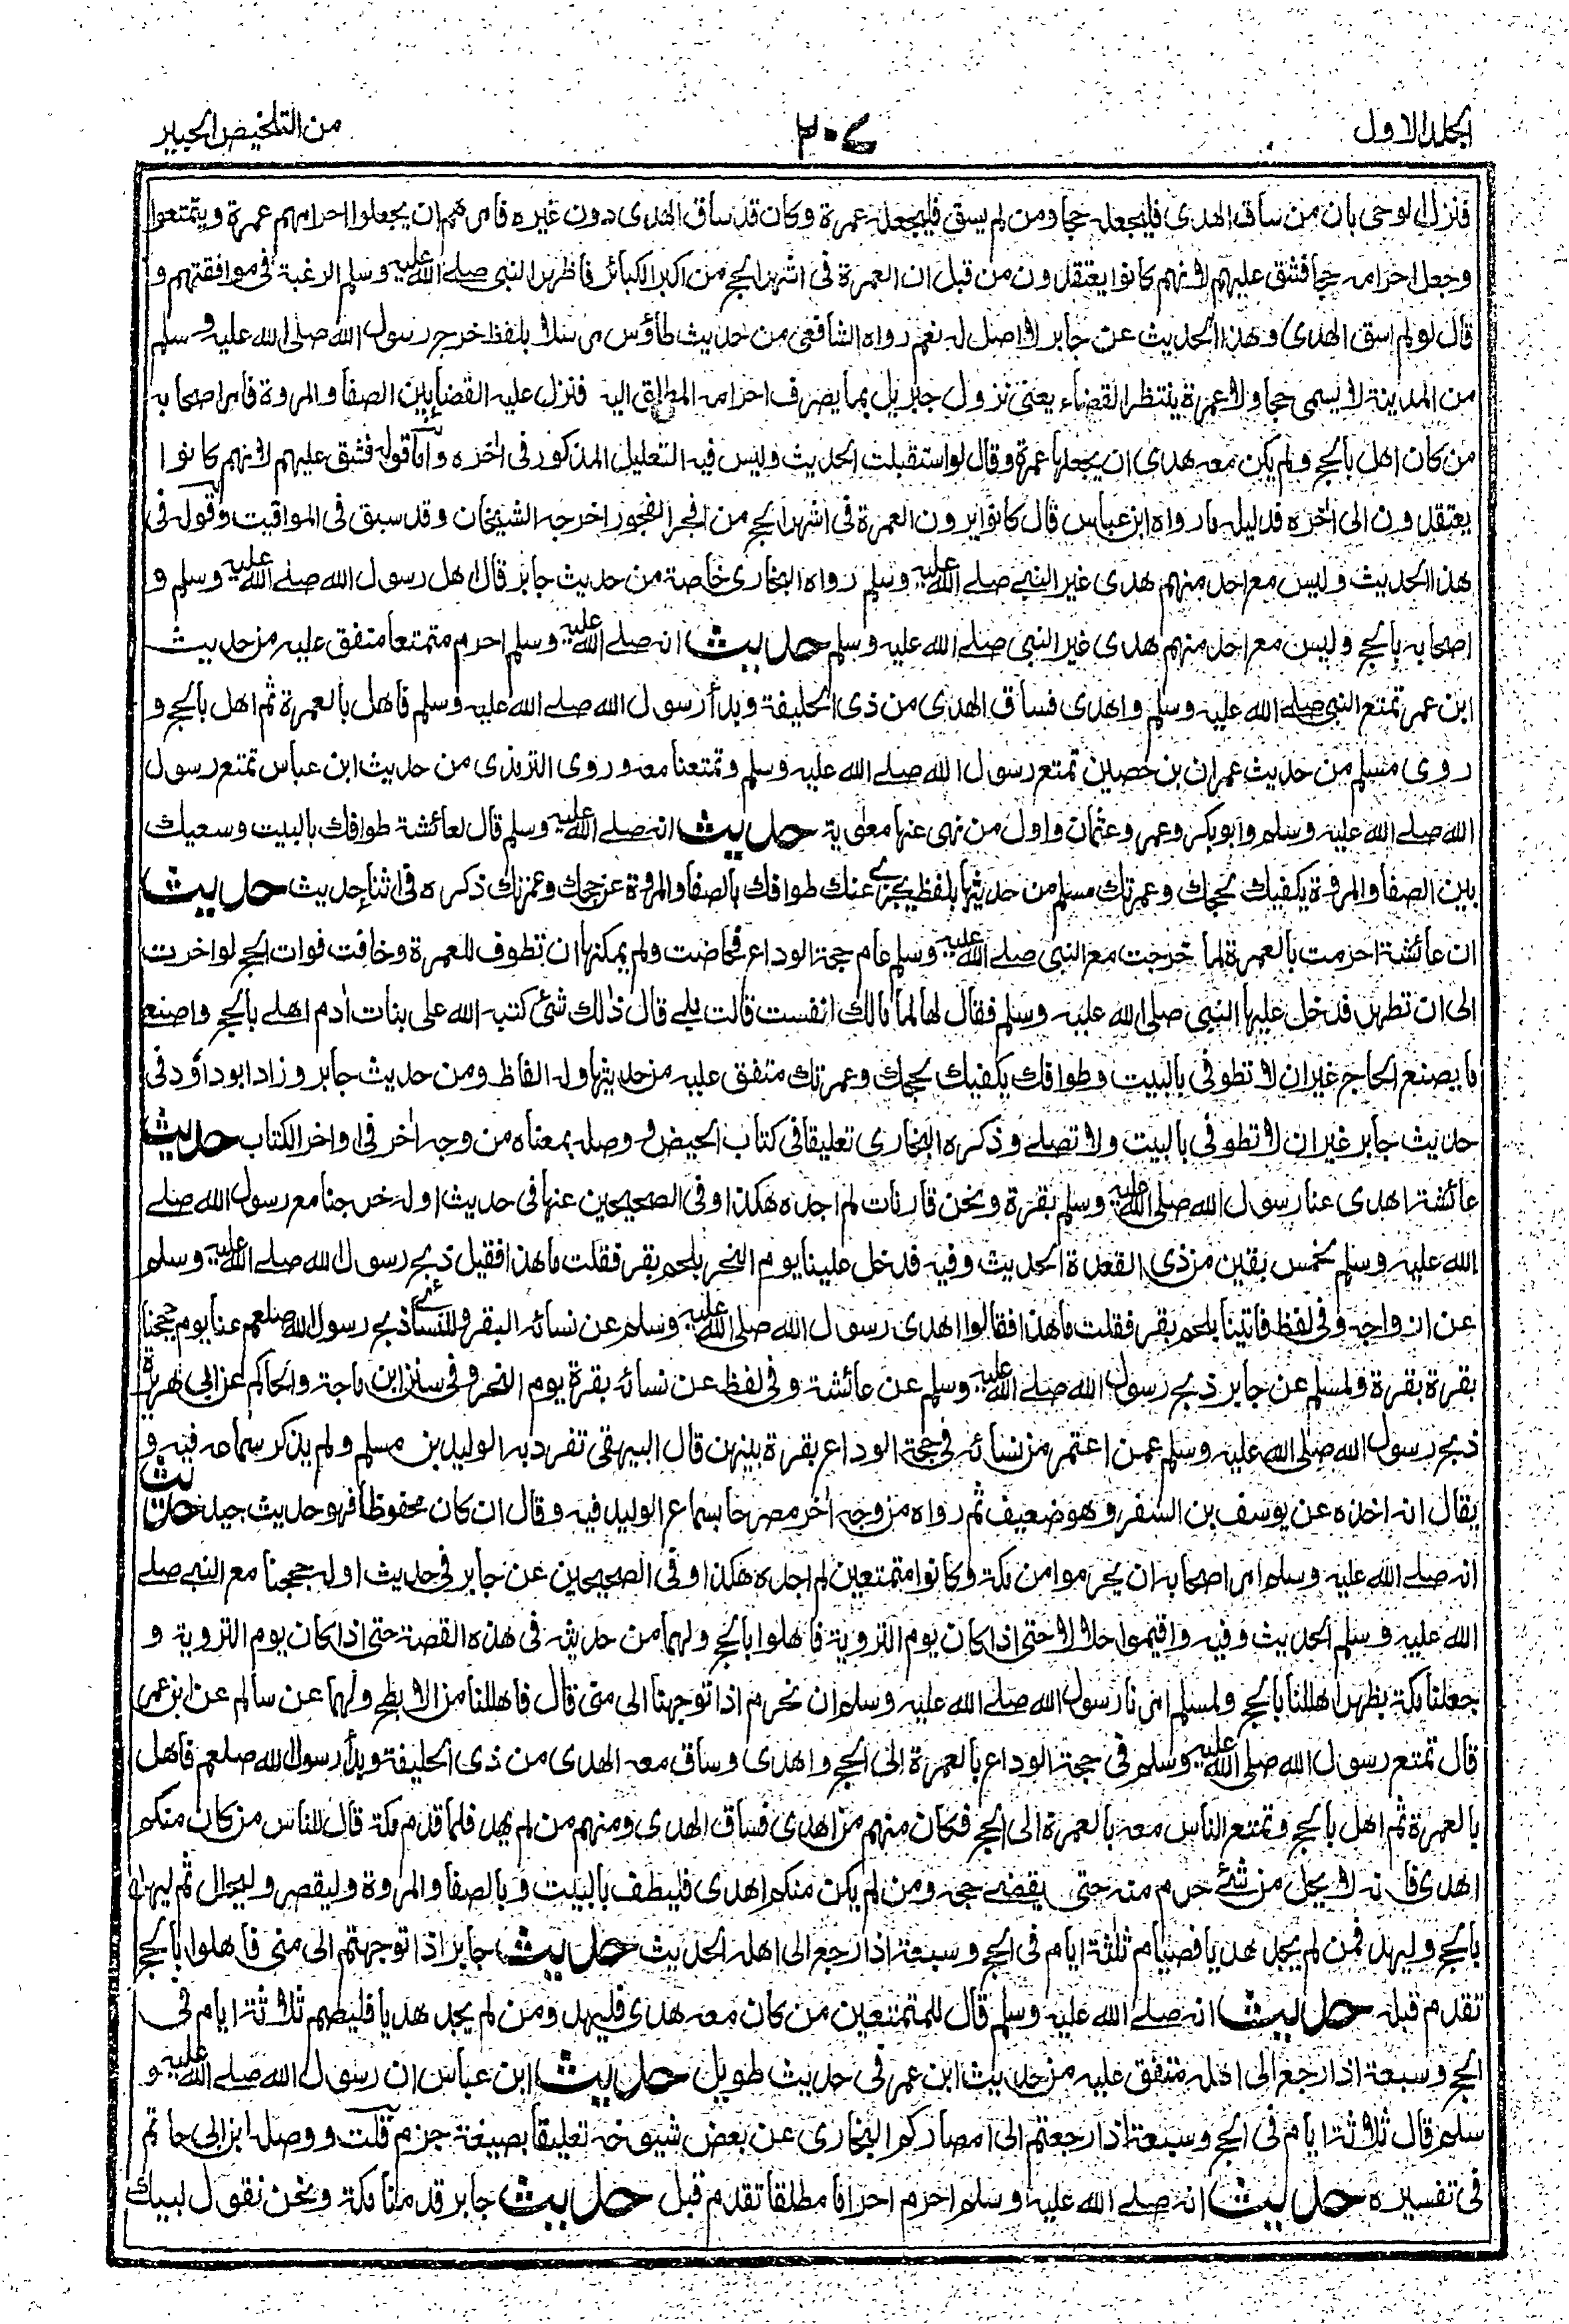 الجلد الاول
٢٠٧
من التلخيص الحبير
فنزل الوحى بان من ساق الهدى فليجعله حجا ومن لم يسق فليجعله عمرة وكان قد ساق الهدى دون غيره فامرهم ان يجعلوا احرامهم عمرة ويتمتعوا
وجعل احرامه حجا فشق عليهم لانهم كانوا يعتقدون من قبل ان العمرة فى اشهر الحج من اكبر الكبائر فاظهر النبى صلے الله عليه وسلم الرغبة فى موافقتهم و
قال لو لم اسق الهدى وهذا الحديث عن جابر لا اصل له نعم رواه الشافعى من حديث طاؤس مرسلا بلفظ خرج رسول الله صلى الله عليه وسلم
من المدينة لا يسمى حجا ولا عمرة ينتظر القضاء يعنى نزول جابريل بما يصرف احرامه المطلق اليه فنزل عليه القضا بين الصفا والمروة فامر اصحابه
من كان اهل بالحج ولم يكن معه هدى ان يجعلها عمرة وقال لو استقبلت الحديث وليس فيه التعليل المذكور فى اخره واما قوله فشق عليهم لانهم كانوا
يعتقدون الى اخره فدليله ما رواه ابن عباس قال كانوا يرون العمرة فى اشهر الحج من افجر الفجور اخرجه الشيخان وقد سبق فى المواقيت وقوله فى
هذا الحديث وليس مع احد منهم هدى غير النبے صلے الله عليه وسلم رواه البخارى خاصة من حديث جابر قال اهل رسول الله صلے الله عليه وسلم و
اصحابه بالحج وليس مع احد منهم هدى غير النبى صلے الله عليه وسلم حديث انه صلے الله عليه وسلم احرم متمتعا متفق عليه من حديث
ابن عمر تمتع النبى صلے الله عليه وسلم واهدى فساق الهدى من ذى الحليفة وبدأ رسول الله صلے الله عليه وسلم فاهل بالعمرة ثم اهل بالحج و
روى مسلم من حديث عمران بن حصين تمتع رسول الله صلے الله عليه وسلم وتمتعنا معه وروى الترمذى من حديث ابن عباس تمتع رسول
الله صلے الله عليه وسلم وابو بكر وعمر وعثمان واول من نهى عنها معوية حديث انه صلے الله عليه وسلم قال لعائشة طوافك بالبيت وسعيك
بين الصفا والمروة يكفيك لحجك وعمرتك مسلم من حديثها بلفظ يجزے عنك طوافك بالصفا والمروة عن حجك وعمرتك ذكره فى اثنا حديث حديث
ان عائشة احرمت بالعمرة لما خرجت مع النبى صلے الله عليه وسلم عام حجة الوداع فحاضت ولم يمكنها ان تطوف للعمرة وخافت فوات الحج لو اخرت
الى ان تطهر فدخل عليها النبى صلى الله عليه وسلم فقال لها لما مالك انفست قالت بلے قال ذلك شئ كتبه الله على بنات ادم اهلے بالحج واصنعى
ما يصنع الحاج غير ان لا تطوفى بالبيت وطوافك يكفيك لحجك وعمرتك متفق عليه من حديثها وله الفاظ ومن حديث جابر وزاد ابو داؤد فى
حديث جابر غير ان لا تطوفى بالبيت ولا تصلے وذكره البخارى تعليقا فى كتاب الحيض و وصله بمعناه من وجه اخر فى اواخر الكتاب حديث
عائشة اهدى عنا رسول الله صلى الله عليه وسلم بقرة ونحن قارنات لم اجده هكذا وفى الصحيحين عنها فى حديث اوله خرجنا مع رسول الله صلے
الله عليه وسلم لخمس بقين من ذى القعدة الحديث وفيه فدخل علينا يوم النحر بلحم بقر فقلت ما هذا فقيل ذبح رسول الله صلے الله عليه وسلم
عن ازواجه وفى لفظ فاتينا بلحم بقر فقلت ما هذا فقالوا اهدى رسول الله صلى الله عليه وسلم عن نسائه البقر وللنسائے ذبح رسول الله صلعم عنا يوم حججنا
بقرة بقرة ولمسلم عن جابر ذبح رسول الله صلے الله عليه وسلم عن عائشة وفى لفظ عن نسائه بقرة يوم النحر وفى سنن ابن ماجة والحاكم عن ابى هريرة
ذبح رسول الله صلى الله عليه وسلم عمن اعتمر من نسائه فى حجة الوداع بقرة بينهن قال البيهقى تفرد به الوليد بن مسلم ولم يذكر سماعه فيه و
يقال انه اخذه عن يوسف بن السفر وهو ضعيف ثم رواه من وجه اخر مصرحا بسماع الوليد فيه وقال ان كان محفوظا فهو حديث جيد حديث
انه صلے الله عليه وسلم امر اصحابه ان يحرموا من مكة وكانوا متمتعين لم اجده هكذا وفى الصحيحين عن جابر فى حديث اوله حججنا مع النبے صلے
الله عليه وسلم الحديث وفيه واقيموا حلالا حتى اذا كان يوم التروية فاهلوا بالحج ولهما من حديثه فى هذه القصة حتى اذا كان يوم التروية و
جعلنا مكة بظهر اهللنا بالحج ولمسلم امرنا رسول الله صلے الله عليه وسلم ان نحرم اذا توجهنا الى منى قال فاهللنا من الابطح ولهما عن سالم عن ابن عمر
قال تمتع رسول الله صلى الله عليه وسلم فى حجة الوداع بالعمرة الى الحج واهدى وساق معه الهدى من ذى الحليفة وبدأ رسول الله صلعم فاهل
بالعمرة ثم اهل بالحج وتمتع الناس معه بالعمرة الى الحج فكان منهم من اهدى فساق الهدى ومنهم من لم يهد فلما قدم مكة قال للناس من كان منكم
اهدى فانه لا يحل من شئے حرم منه حتى يقضے حجه ومن لم يكن منكم اهدى فليطف بالبيت وبالصفا والمروة وليقصر وليحلل ثم ليهل
بالحج وليهد فمن لم يجد هديا فصيام ثلثة ايام فى الحج وسبعة اذا رجع الى اهله الحديث حديث جابر اذا توجهتم الى منى فاهلوا بالحج
تقدم قبله حديث انه صلے الله عليه وسلم قال للمتمتعين من كان معه هدى فليهد ومن لم يجد هديا فليصم ثلاثة ايام فى
الحج وسبعة اذا رجع الى اهله متفق عليه من حديث ابن عمر فى حديث طويل حديث ابن عباس ان رسول الله صلے الله عليه و
سلم قال ثلاثة ايام فى الحج وسبعة اذا رجعتم الى امصاركم البخارى عن بعض شيوخه تعليقا بصيغة جزم قلت ووصله ابن ابى حاتم
فى تفسيره حديث انه صلے الله عليه وسلم احرم احراما مطلقا تقدم قبل حديث جابر قدمنا مكة ونحن نقول لبيك